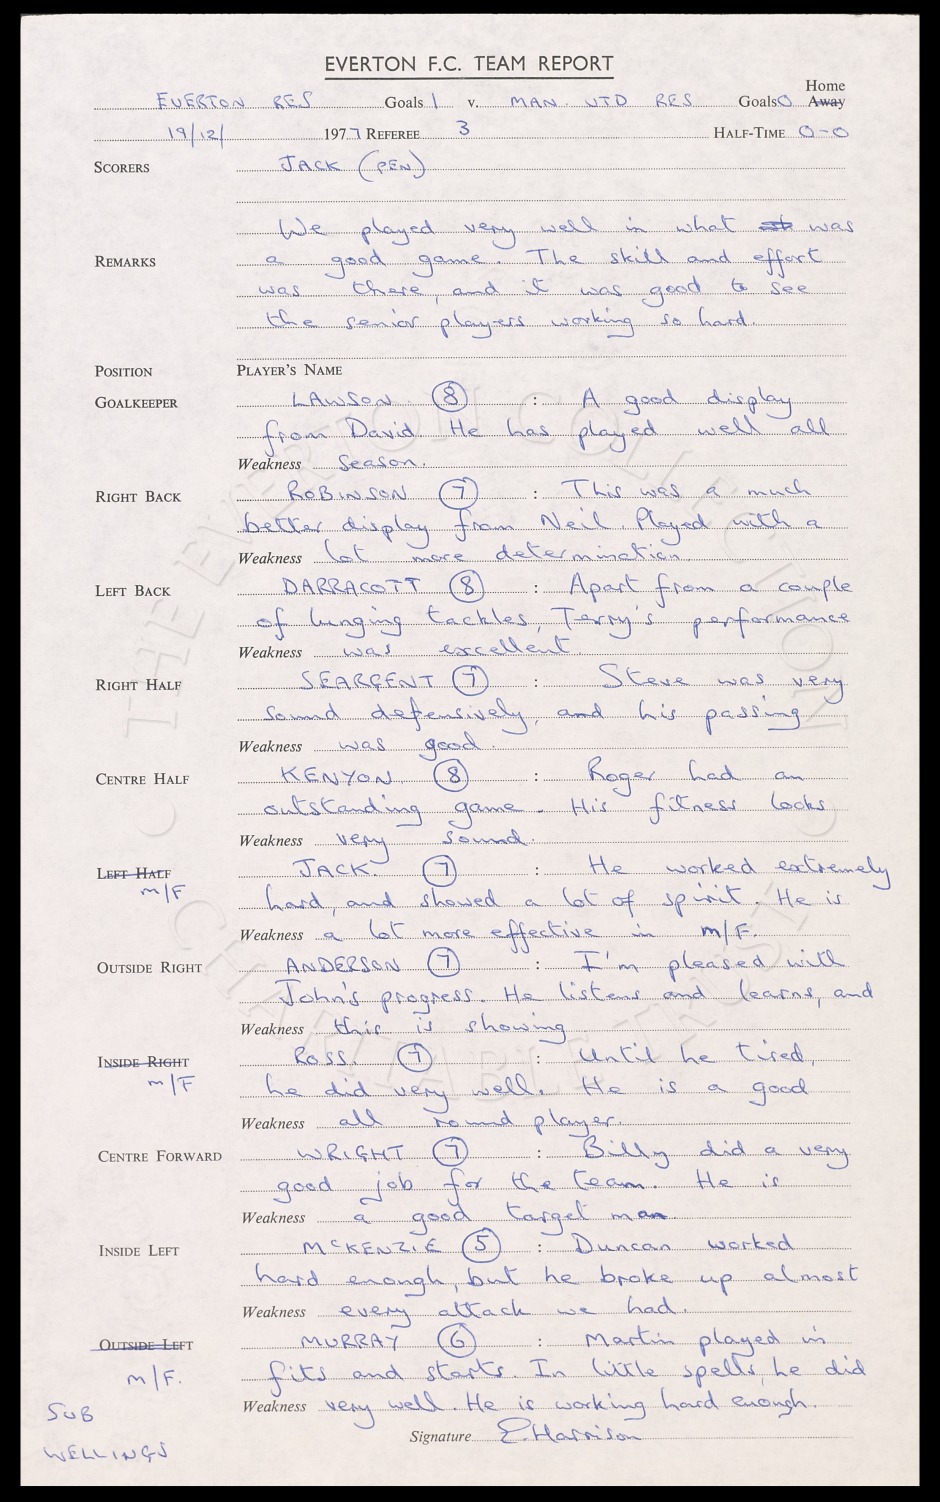 EVERTON F.C. TEAM REPORT
Home
EVERTON RES Goals 1 v. MAN. UTD RES Goals 0 Away
19/12/ 1977 REFEREE 3 HALF-TIME 0-0
SCORERS JACK (PEN)
We played very well in what was
REMARKS a good game. The skill and effort
was there, and it was good to see
the senior players working so hard.
POSITION PLAYER'S NAME
GOALKEEPER LAWSON 8 : A good display
from David. He has played well all
Weakness season.
RIGHT BACK ROBINSON 7 : This was a much
better display from Neil. Played with a
Weakness lot more determination
LEFT BACK DARRACOTT 8 : Apart from a couple
of lunging tackles, Terry's performance
Weakness was excellent.
RIGHT HALF SEARGENT 7 : Steve was very
sound defensively, and his passing
Weakness was good.
CENTRE HALF KENYON 8 : Roger had an
outstanding game. His fitness looks
Weakness very sound.
LEFT HALF JACK. 7 : He worked extremely
M/F hard, and showed a lot of spirit. He is
Weakness a lot more effective in M/F.
OUTSIDE RIGHT ANDERSON 7 : I'm pleased with
John's progress. He listens and learns, and
Weakness this is showing
INSIDE RIGHT ROSS 7 : Until he tired,
M/F he did very well. He is a good
Weakness all round player.
CENTRE FORWARD WRIGHT 7 : Billy did a very
good job for the team. He is
Weakness a good target man.
INSIDE LEFT McKENZIE 5 : Duncan worked
hard enough, but he broke up almost
Weakness every attack we had.
OUTSIDE LEFT MURRAY 6 : Martin played in
M/F. fits and starts. In little spells, he did
Weakness very well. He is working hard enough.
SUB
Signature E. Harrison
WELLINGS
THE EVERTON COLLECTION
CHARITABLE TRUST